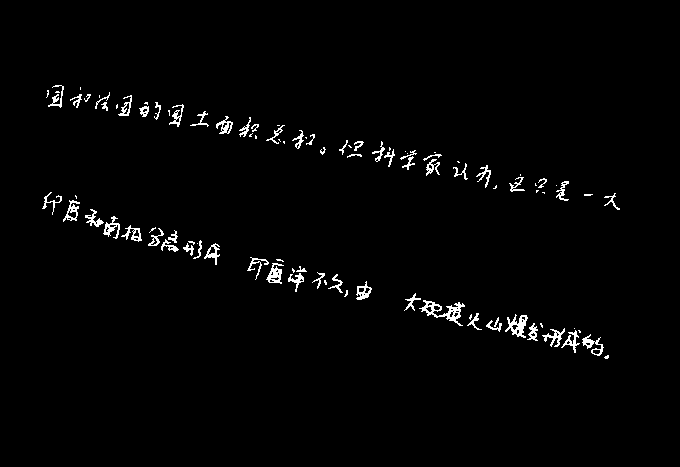 国和法国的国土面积总和。但科学家认为,这只是一大
印度和南极分离形成 印度洋不久,由 大规模火山爆发形成的.